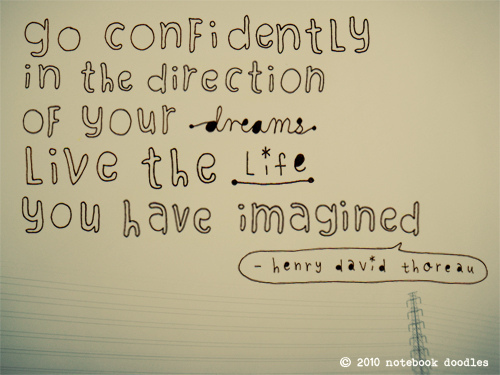 go confidently
in the direction
of your dreams.
Live the Life
you have imagined
- henry david thoreau
© 2010 notebook doodles